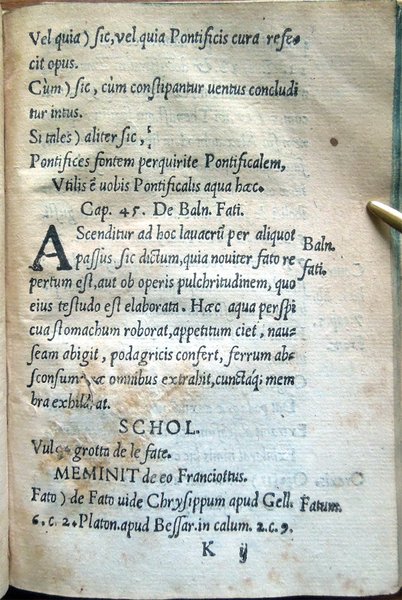 Vel quia) sic, vel quia Pontificis cura refe-
cit opus.
Cùm) sic, cùm constipantur uentus concludi
tur intus.
Si tales) aliter sic,
Pontifices fontem perquirite Pontificalem,
Vtilis ẽ uobis Pontificalis aqua hæc.
Cap. 45. De Baln. Fati.
AScenditur ad hoc lauacrũ per aliquot
passus sic dictum, quia nouiter fato re
pertum est, aut ob operis pulchritudinem, quo
eius testudo est elaborata. Hæc aqua perspi
cua stomachum roborat, appetitum ciet, nau-
seam abigit, podagricis confert, ferrum ab-
omnibus extrahit, cunctáq; mem
bra
Baln.
fati.
SCHOL.
grotta de le fate.
MEMINIT de eo Franciottus.
Fato) de Fato uide Chrysippum apud Gell.
6. c. 2. Platon. apud Bessar. in calum. 2. c. 9.
Fatum.
K ij